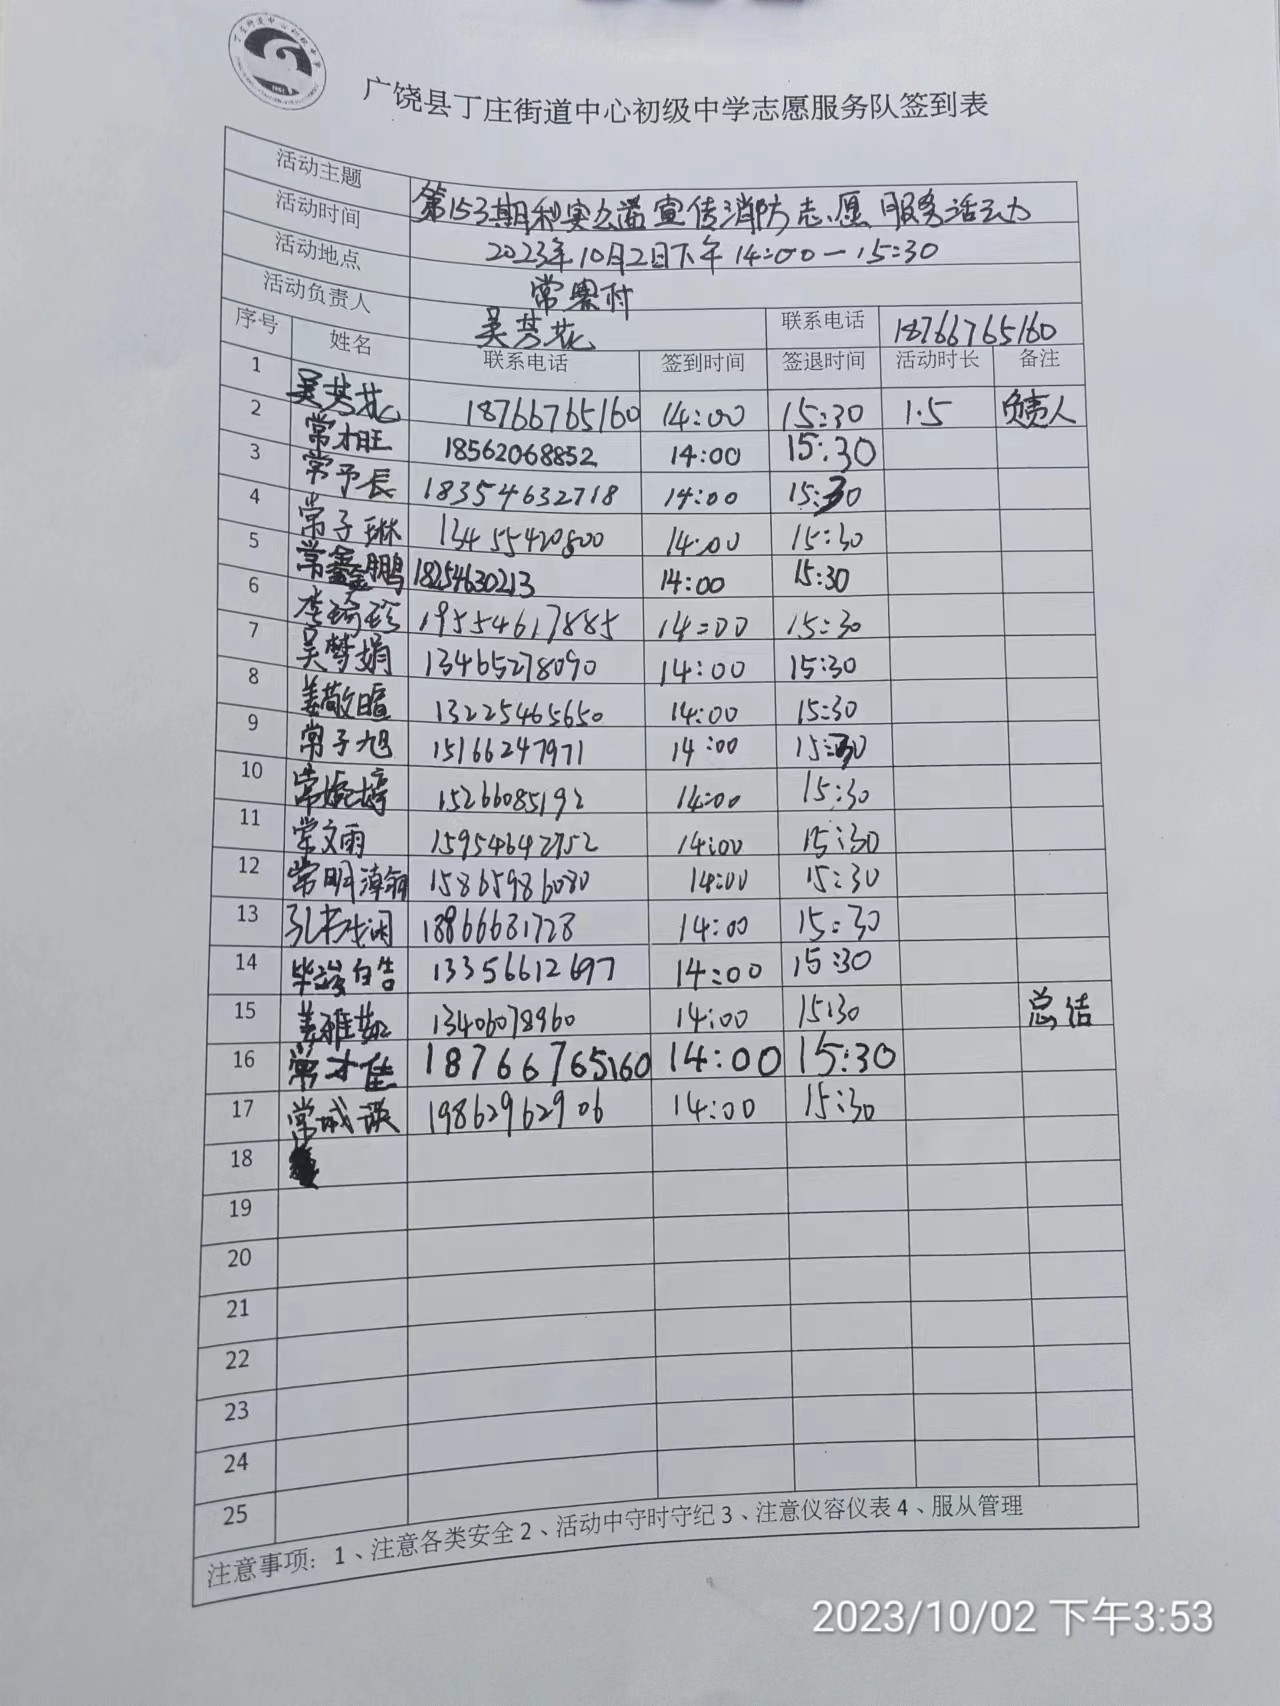 广饶县丁庄街道中心初级中学志愿服务队签到表
活动主题 第153期利实公益宣传消防志愿服务活动
活动时间 2023年10月2日下午14:00—15:30
活动地点 常寨村
活动负责人 吴芳花 联系电话 18766765160
序号 姓名 联系电话 签到时间 签退时间 活动时长 备注
1 吴芳花 18766765160 14:00 15:30 1.5 负责人
2 常才旺 18562068852 14:00 15:30
3 常予長 18354632718 14:00 15:30
4 常子琳 13455420800 14:00 15:30
5 常鑫鹏 18254630213 14:00 15:30
6 李瑜珍 19554617885 14:00 15:30
7 吴梦娟 13465278090 14:00 15:30
8 姜敬暄 13225465650 14:00 15:30
9 常子旭 15166247971 14:00 15:30
10 常婉婷 15266085192 14:00 15:30
11 常文雨 15954642752 14:00 15:30
12 常明 15865986080 14:00 15:30
13 孔 18866681728 14:00 15:30
14 毕 13356612697 14:00 15:30
15 姜雅茹 13406078960 14:00 15:30 总结
16 常才佳 18766765160 14:00 15:30
17 常城 19862962906 14:00 15:30
18
19
20
21
22
23
24
25
注意事项：1、注意各类安全 2、活动中守时守纪 3、注意仪容仪表 4、服从管理
2023/10/02 下午3:53